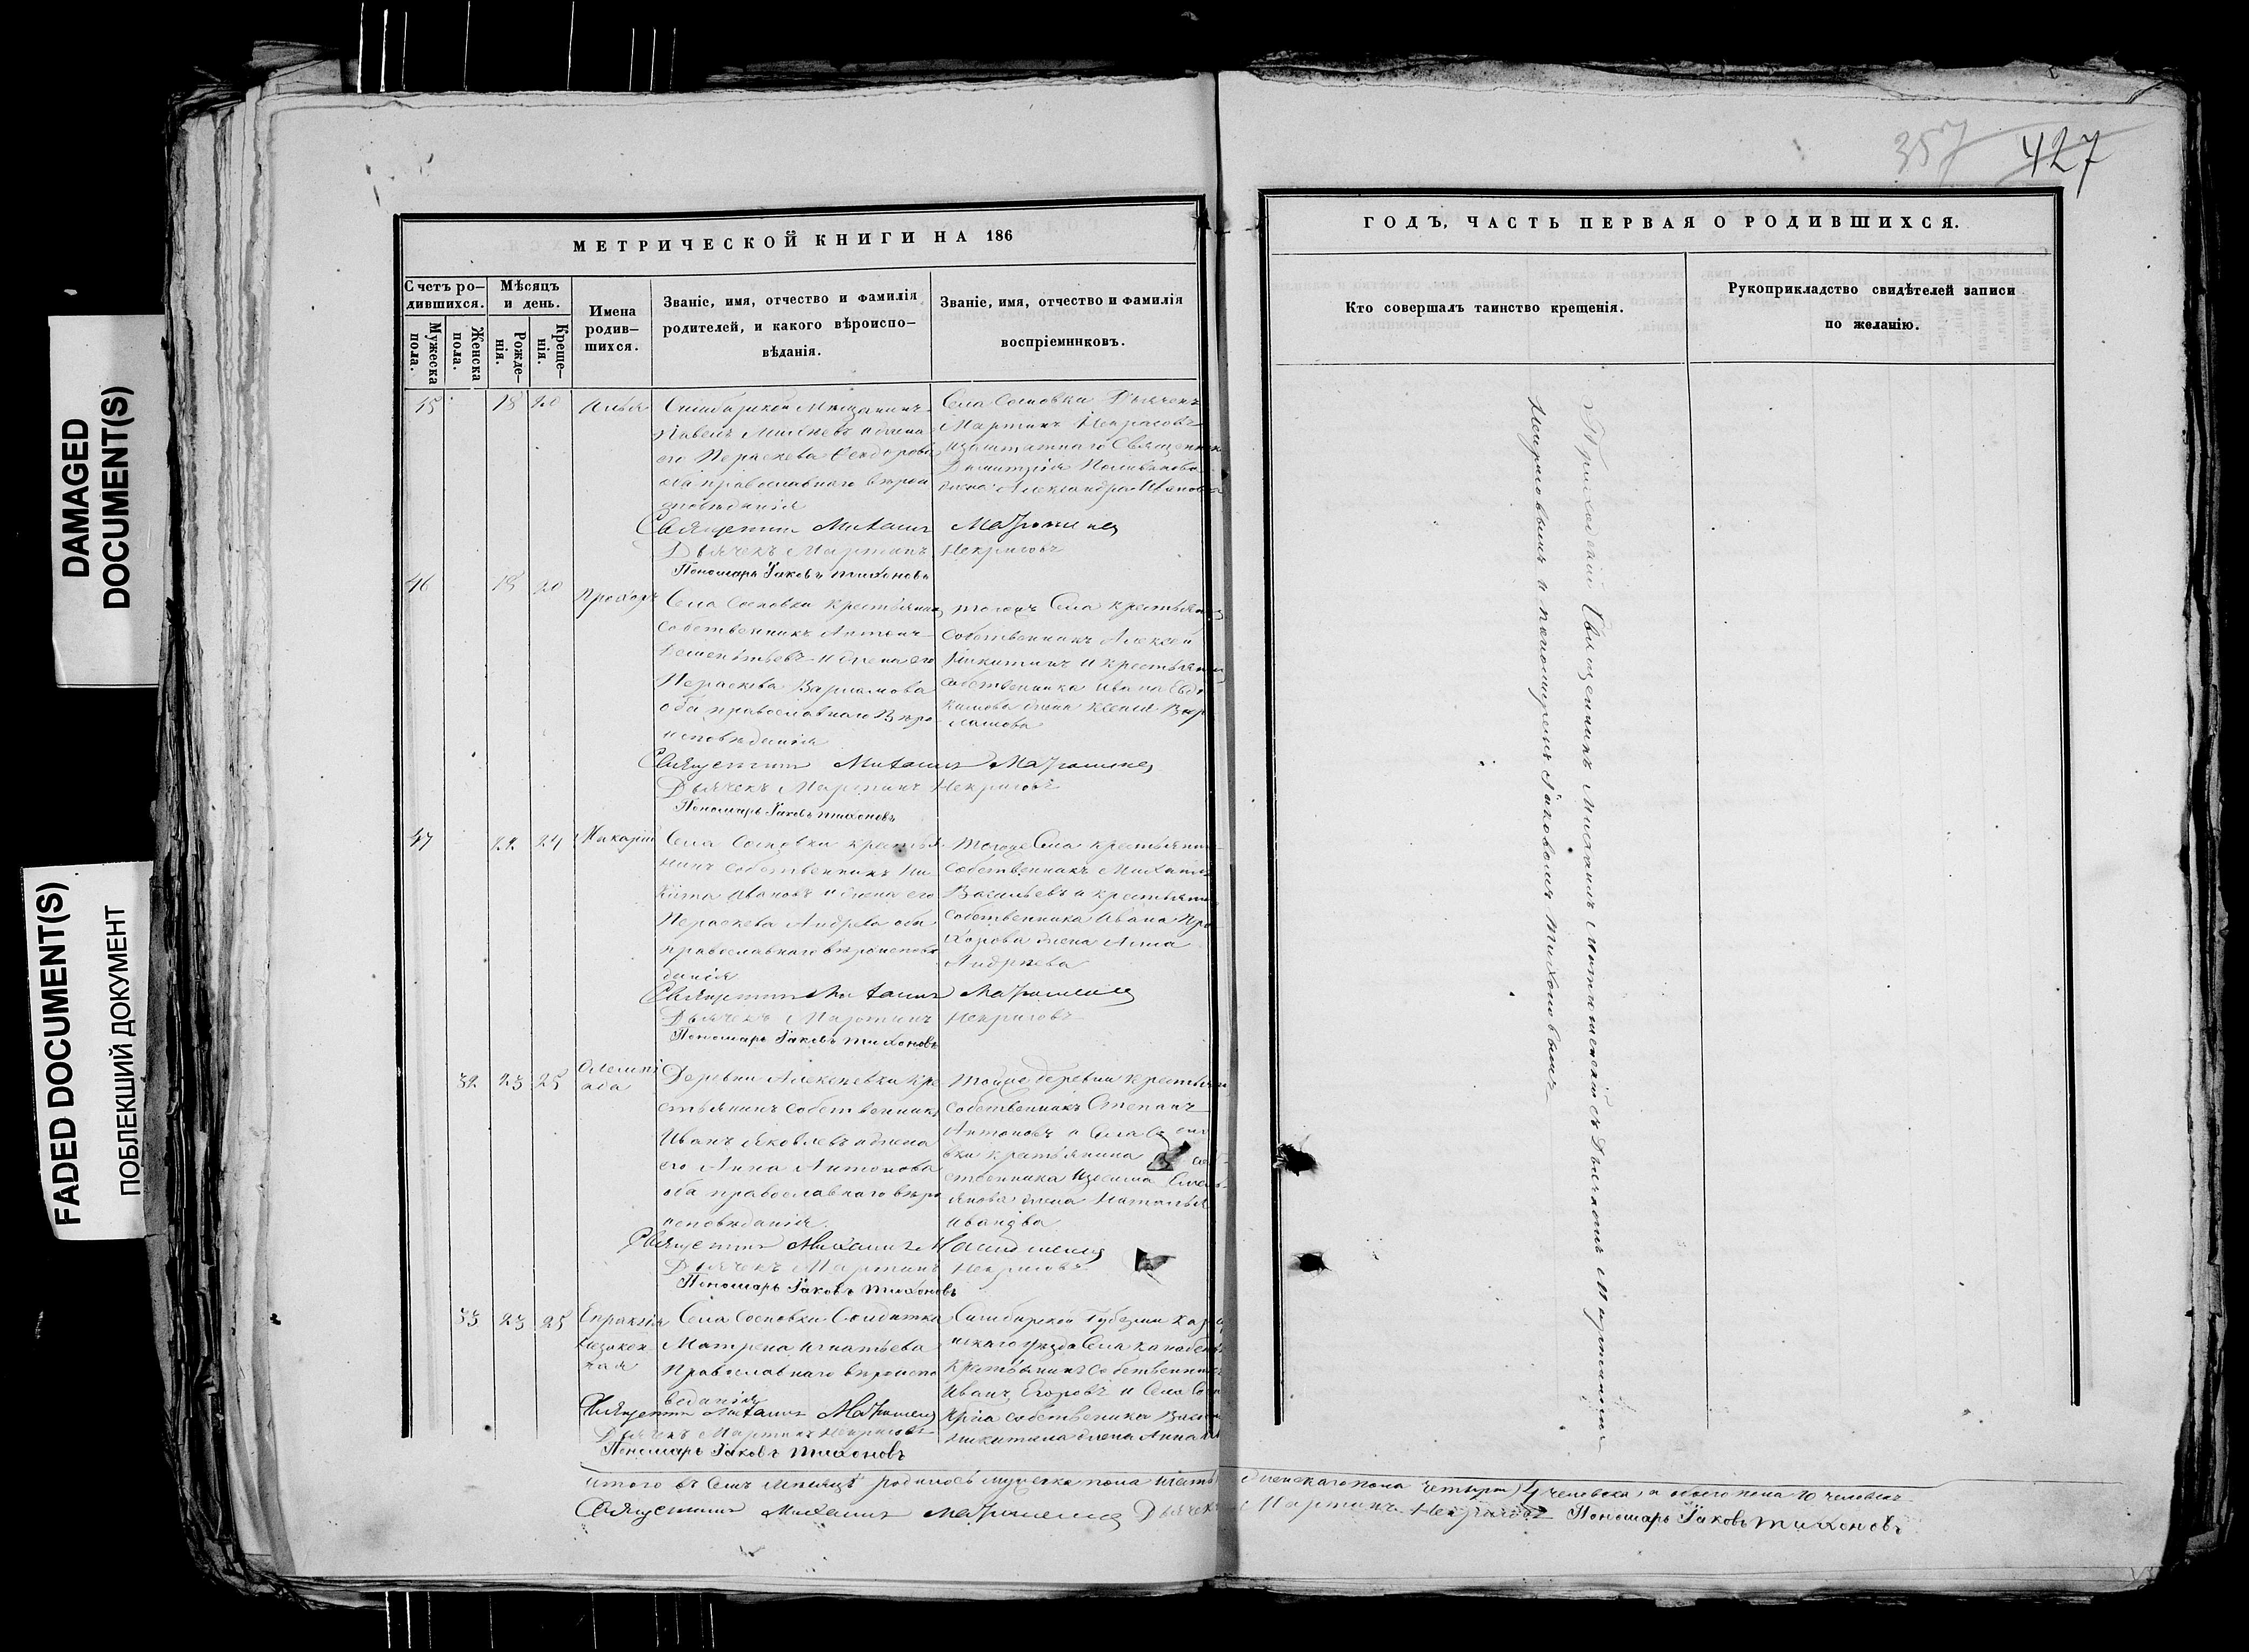 357 427
DAMAGED
DOCUMENT(S)
FADED DOCUMENT(S)
ПОБЛЕКШИЙ ДОКУМЕНТ
МЕТРИЧЕСКОЙ КНИГИ НА 186
Счетъ ро-
дившихся.
Мужеска
пола.
Женска
пола.
Мѣсяцъ
и день.
Рожде-
нія.
Креще-
нія.
Имена
родив-
шихся.
Званіе, имя, отчество и фамилія
родителей, и какого вѣроиспо-
вѣданія.
Званіе, имя, отчество и фамилія
воспріемниковъ.
45 18 20 Илья
Симбирской Мещанинъ
Павелъ и жена
его Параскева
оба православнаго вѣрои
сповѣданія
Села Сосновки Дьячекъ
Мартинъ Некрасовъ
заштатнаго Священника
Димитрія
жена Александра Иванова
Священникъ Михаилъ
Дьячекъ Мартинъ Некрасовъ
Пономарь Іаковъ Тихоновъ
46 18 20 Прохоръ
Села Сосновки крестьянинъ
собственникъ Антонъ
Дементьевъ и жена его
Параскева Варламова
оба православнаго вѣро
исповѣданія
тогожъ Села крестьянинъ
собственникъ Алексей
Никитинъ и крестьянина
собственника Ивана Евдо
кимова жена Ксенія Вар
ламова
Священникъ Михаилъ
Дьячекъ Мартинъ Некрасовъ
Пономарь Іаковъ Тихоновъ
47 22 24 Макарій
Села Сосновки крестья
нинъ собственникъ Ни
кита Ивановъ и жена его
Параскева Андрева оба
православнаго вѣроисповѣ
данія
тогоже Села крестьянинъ
собственникъ Михаилъ
Васильевъ и крестьянина
собственника Ивана Про
хорова жена Анна
Андрѣева
Священникъ Михаилъ
Дьячекъ Мартинъ Некрасовъ
Пономарь Іаковъ Тихоновъ
32 23 25 Олимпі
ада
Деревни Алексѣевки кре
стьянинъ собственникъ
Иванъ Яковлевъ и жена
его Анна Антонова
оба православнаго вѣро
исповѣданія
тойже деревни крестьянинъ
собственникъ Степанъ
Антоновъ и Села
вки крестьянина
ственника
жена Наталья
Иванова
Священникъ Михаилъ
Дьячекъ Мартинъ Некрасовъ
Пономарь Іаковъ Тихоновъ
33 23 25 Евпраксія
незакон
ная
Села Сосновки Солдатка
Матрена Игнатьева
Православнаго вѣроиспо
веданія
Симбирской Губерніи
уѣзда Села
крестьянинъ собственникъ
Иванъ Егоровъ и Села
собственника
Никитина жена Анна
Священникъ Михаилъ
Дьячекъ Мартинъ Некрасовъ
Пономарь Іаковъ Тихоновъ
итого въ семъ мѣсяцѣ родилось мужеска пола шесть женскаго пола четыре 4 человека а обоего пола 10 человекъ
Священникъ Михаилъ Дьячекъ Мартинъ Некрасовъ Пономарь Іаковъ Тихоновъ
ГОДЪ, ЧАСТЬ ПЕРВАЯ О РОДИВШИХСЯ.
Кто совершалъ таинство крещенія.
Рукоприкладство свидѣтелей записи
по желанію.
Приходскій Священникъ Михаилъ съ Дьячкомъ Мартиномъ
Некрасовымъ и пономаремъ Іаковомъ Тихоновымъ